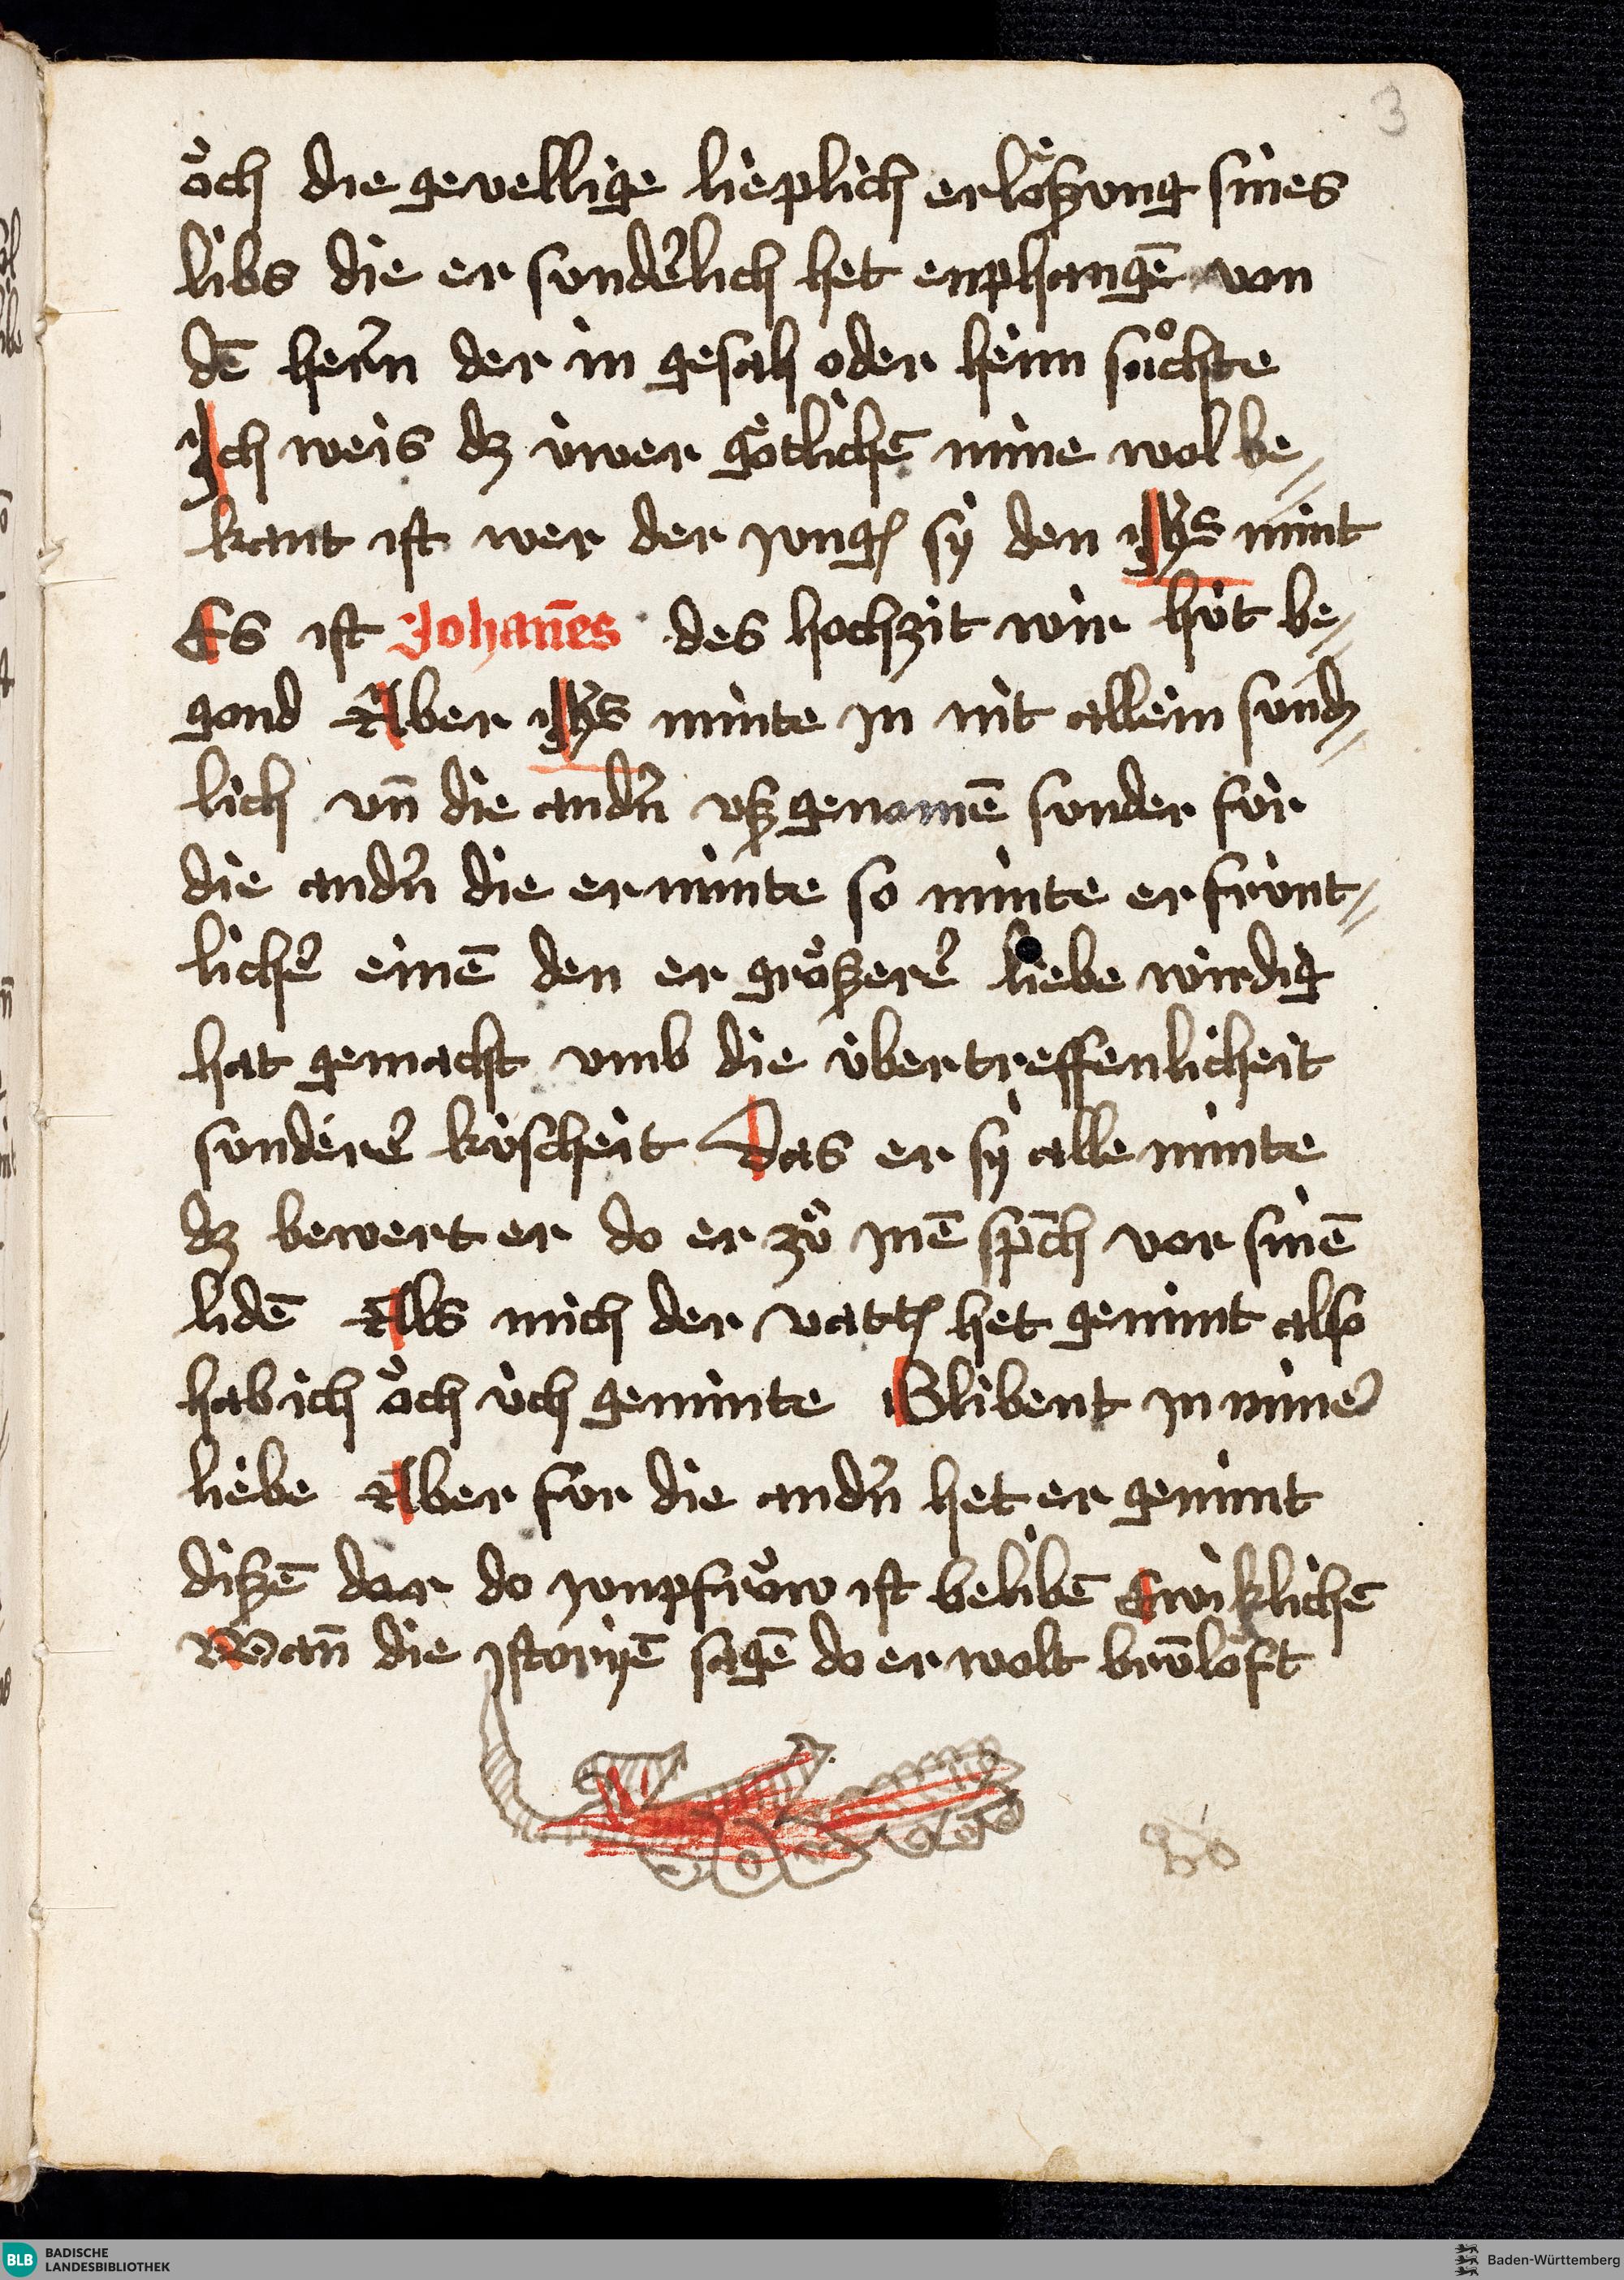 3
o᷎ch die gevellige lieplich erlößung sines
libs die er sunderlich het enphangē von
dē herrn der in gesah oder heim sůchte
Ich weis dz üwer götlichē mine wol be⸗
kant ist wer der jung sy den Jhs mint
Es ist Johañes des hochzit wir hüt be⸗
gond Aber Jhs minte jn nit allein sund⸗
lich vn̄ die andn̄ vßgenomē sonder für
die andn̄ die er minte so minte er fründt⸗
licher einē den er größere liebe wirdig
hat gemacht vmb die übertreffenlicheit
sunderer küscheit Das er sy alle minte
dz bewert er do er zů jnē spch vor sinē
lidē Als mich der vatter het gemint also
hab ich öch üch geminte Blibent jn miner
liebe Aber für die andn̄ het er gemint
dißē dar do jonpfröw ist belibē Ewiklichē
Wan̄ die jstorijē sagē do er wolt brūlöft
BLB BADISCHE
LANDESBIBLIOTHEK
Baden-Württemberg